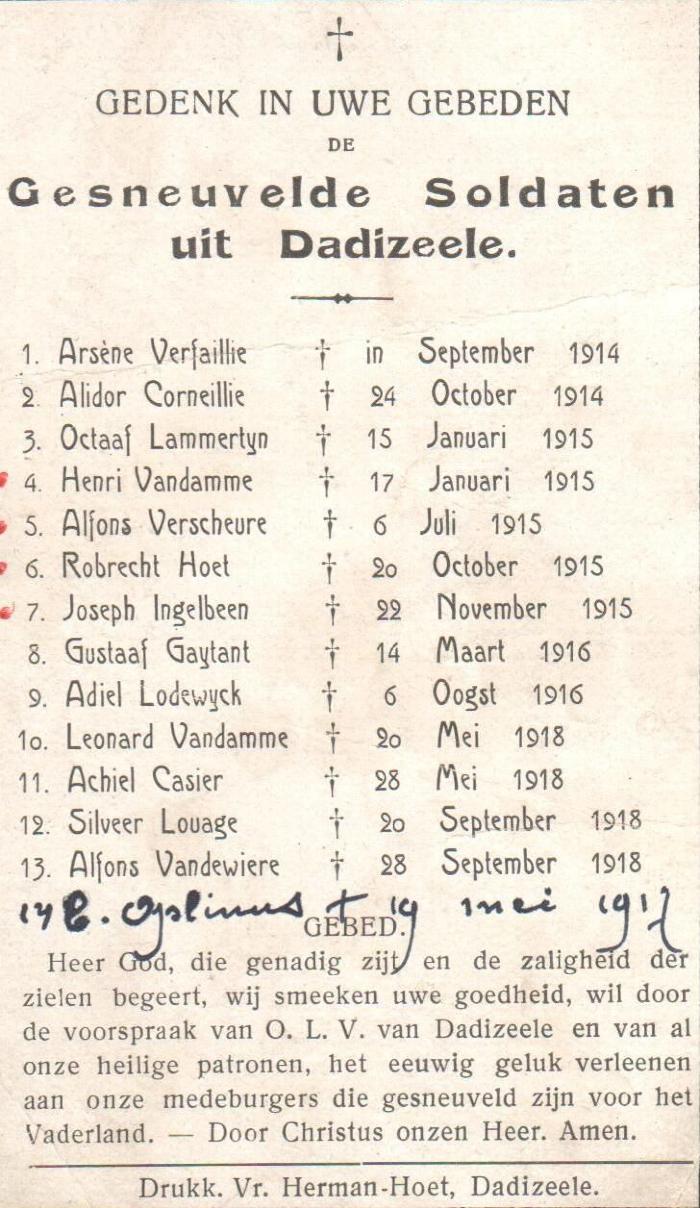 GEDENK IN UWE GEBEDEN
DE
Gesneuvelde Soldaten
uit Dadizeele.
1. Arsène Verfaillie † in September 1914
2. Alidor Corneillie † 24 October 1914
3. Octaaf Lammertyn † 15 Januari 1915
4. Henri Vandamme † 17 Januari 1915
5. Alfons Verscheure † 6 Juli 1915
6. Robrecht Hoet † 20 October 1915
7. Joseph Ingelbeen † 22 November 1915
8. Gustaaf Gaytant † 14 Maart 1916
9. Adiel Lodewyck † 6 Oogst 1916
10. Leonard Vandamme † 20 Mei 1918
11. Achiel Casier † 28 Mei 1918
12. Silveer Louage † 20 September 1918
13. Alfons Vandewiere † 28 September 1918
14 † 19 mei 1917
GEBED.
Heer God, die genadig zijt en de zaligheid der
zielen begeert, wij smeeken uwe goedheid, wil door
de voorspraak van O. L. V. van Dadizeele en van al
onze heilige patronen, het eeuwig geluk verleenen
aan onze medeburgers die gesneuveld zijn voor het
Vaderland. — Door Christus onzen Heer. Amen.
Drukk. Vr. Herman-Hoet, Dadizeele.